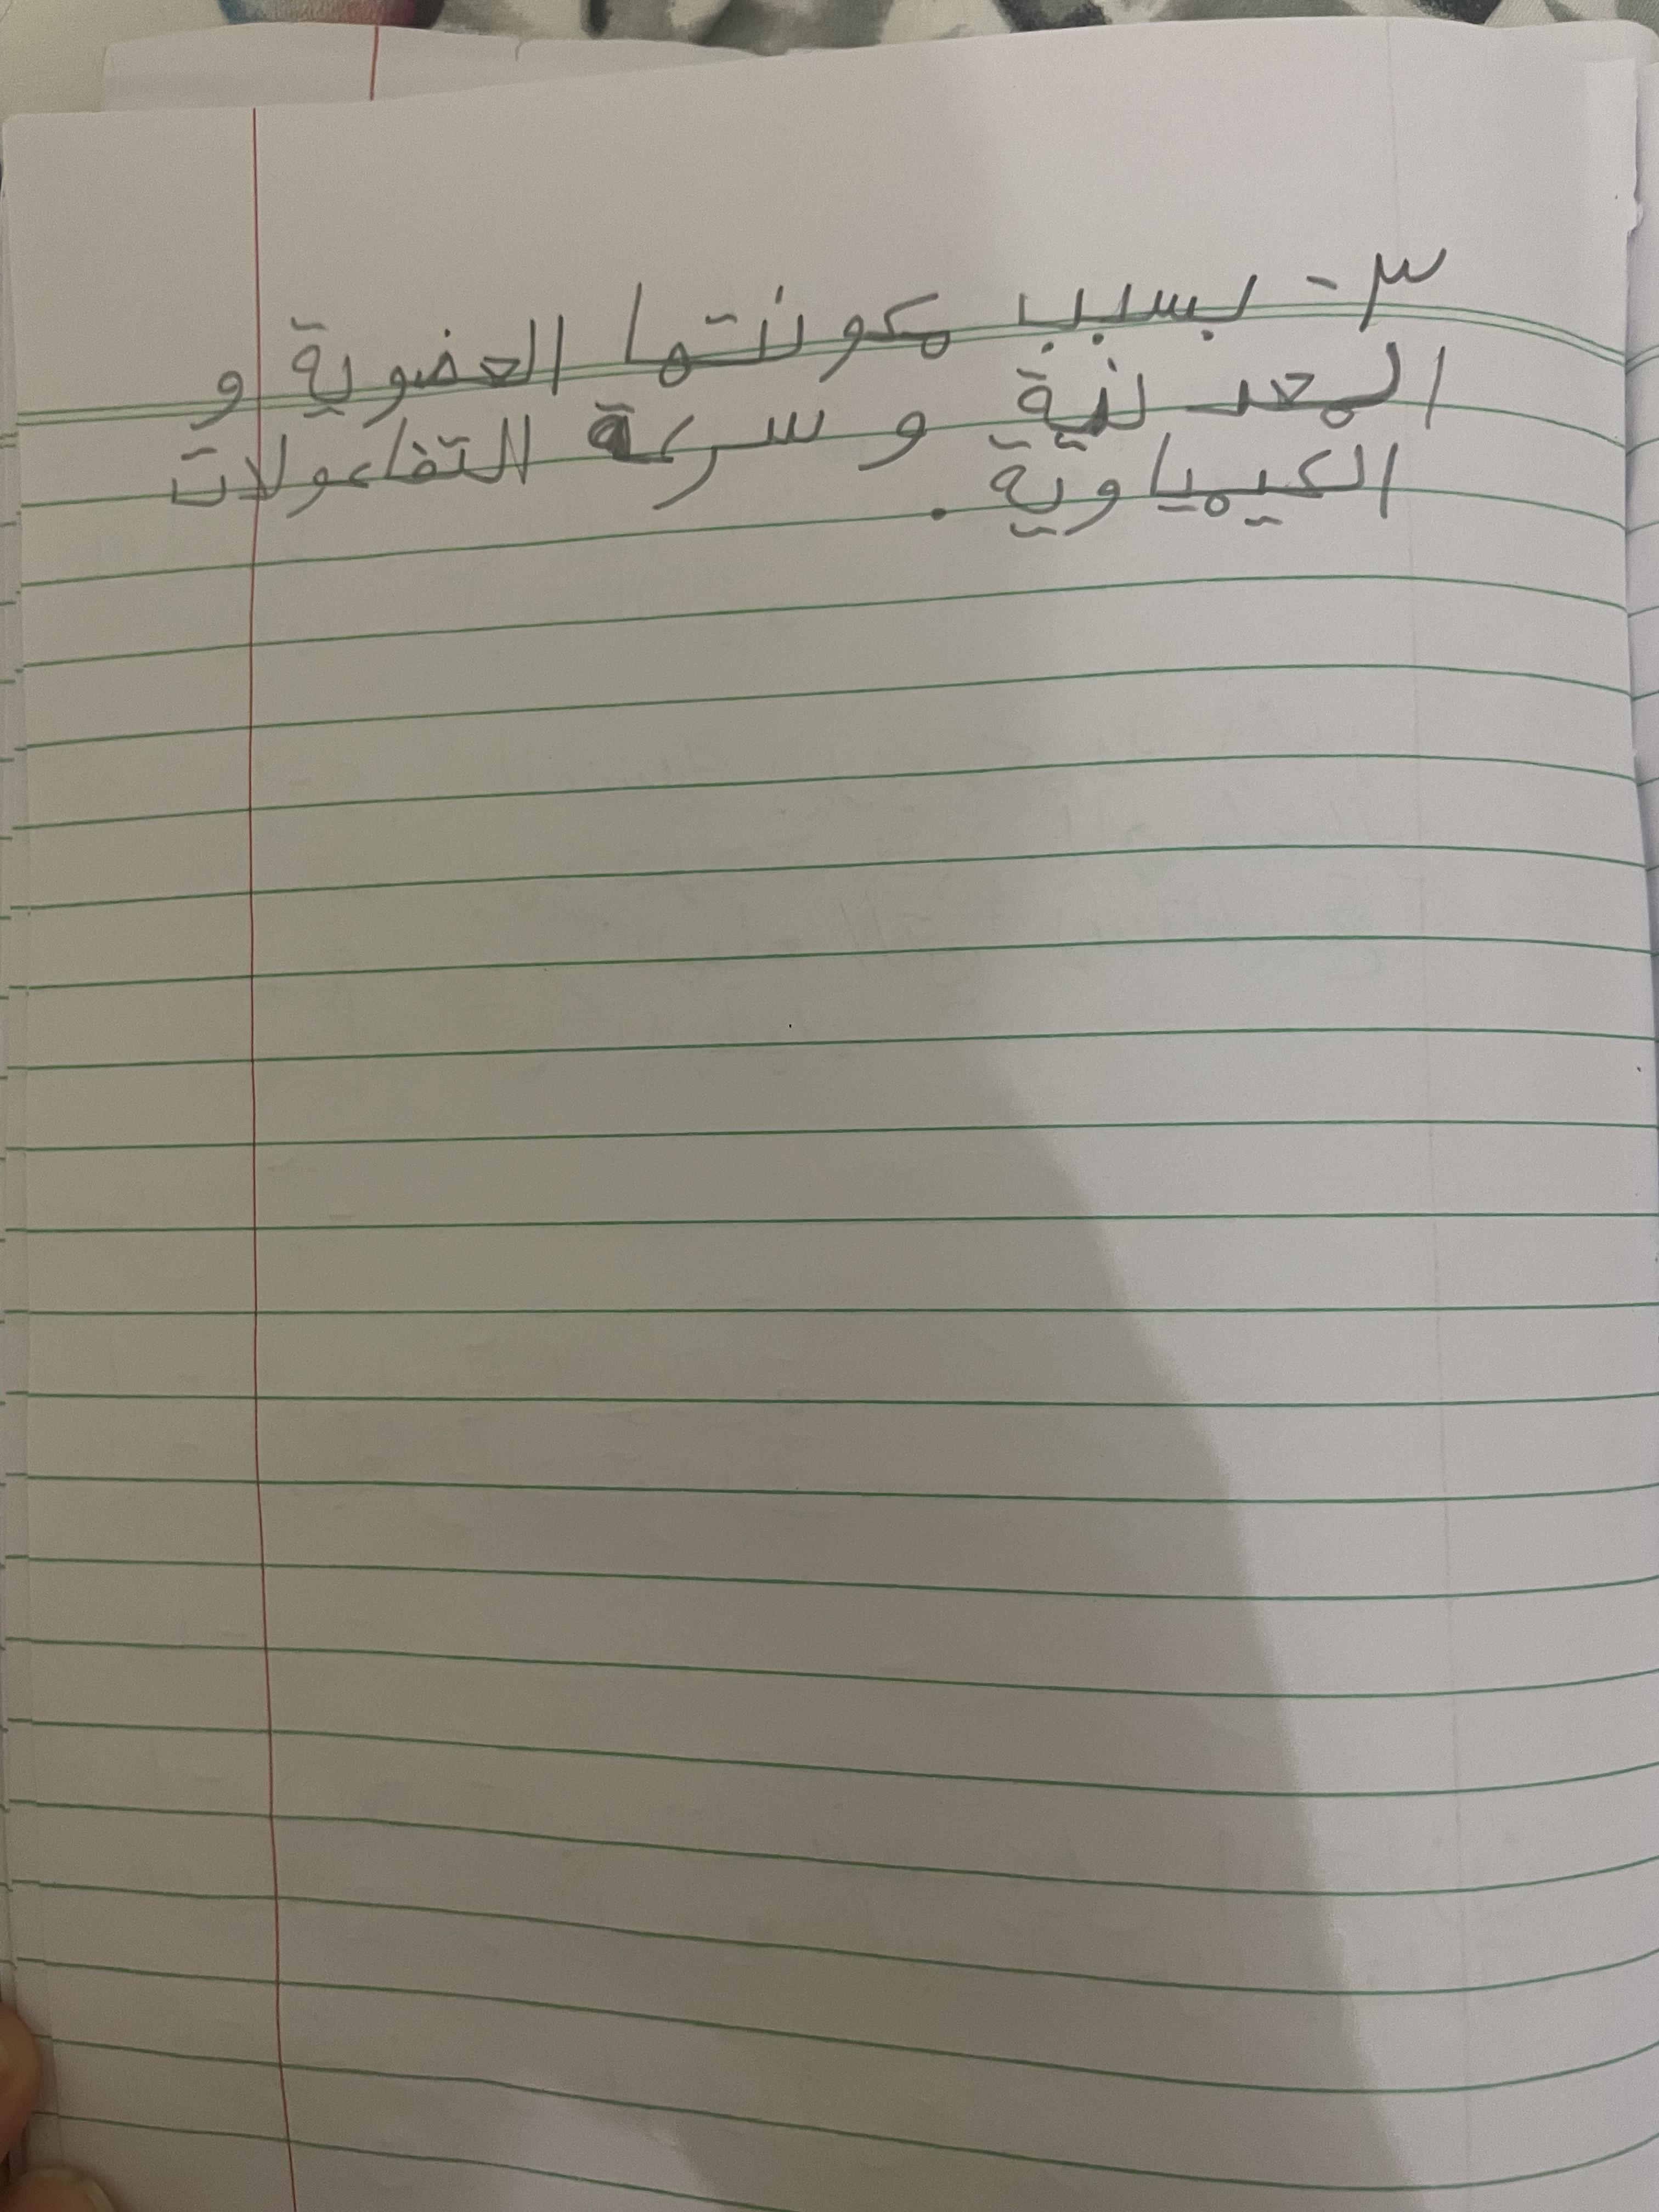 ٣- بسبب مكونتها العضوية و
المعدنية و سرعة التفاعولات
الكيمياوية .